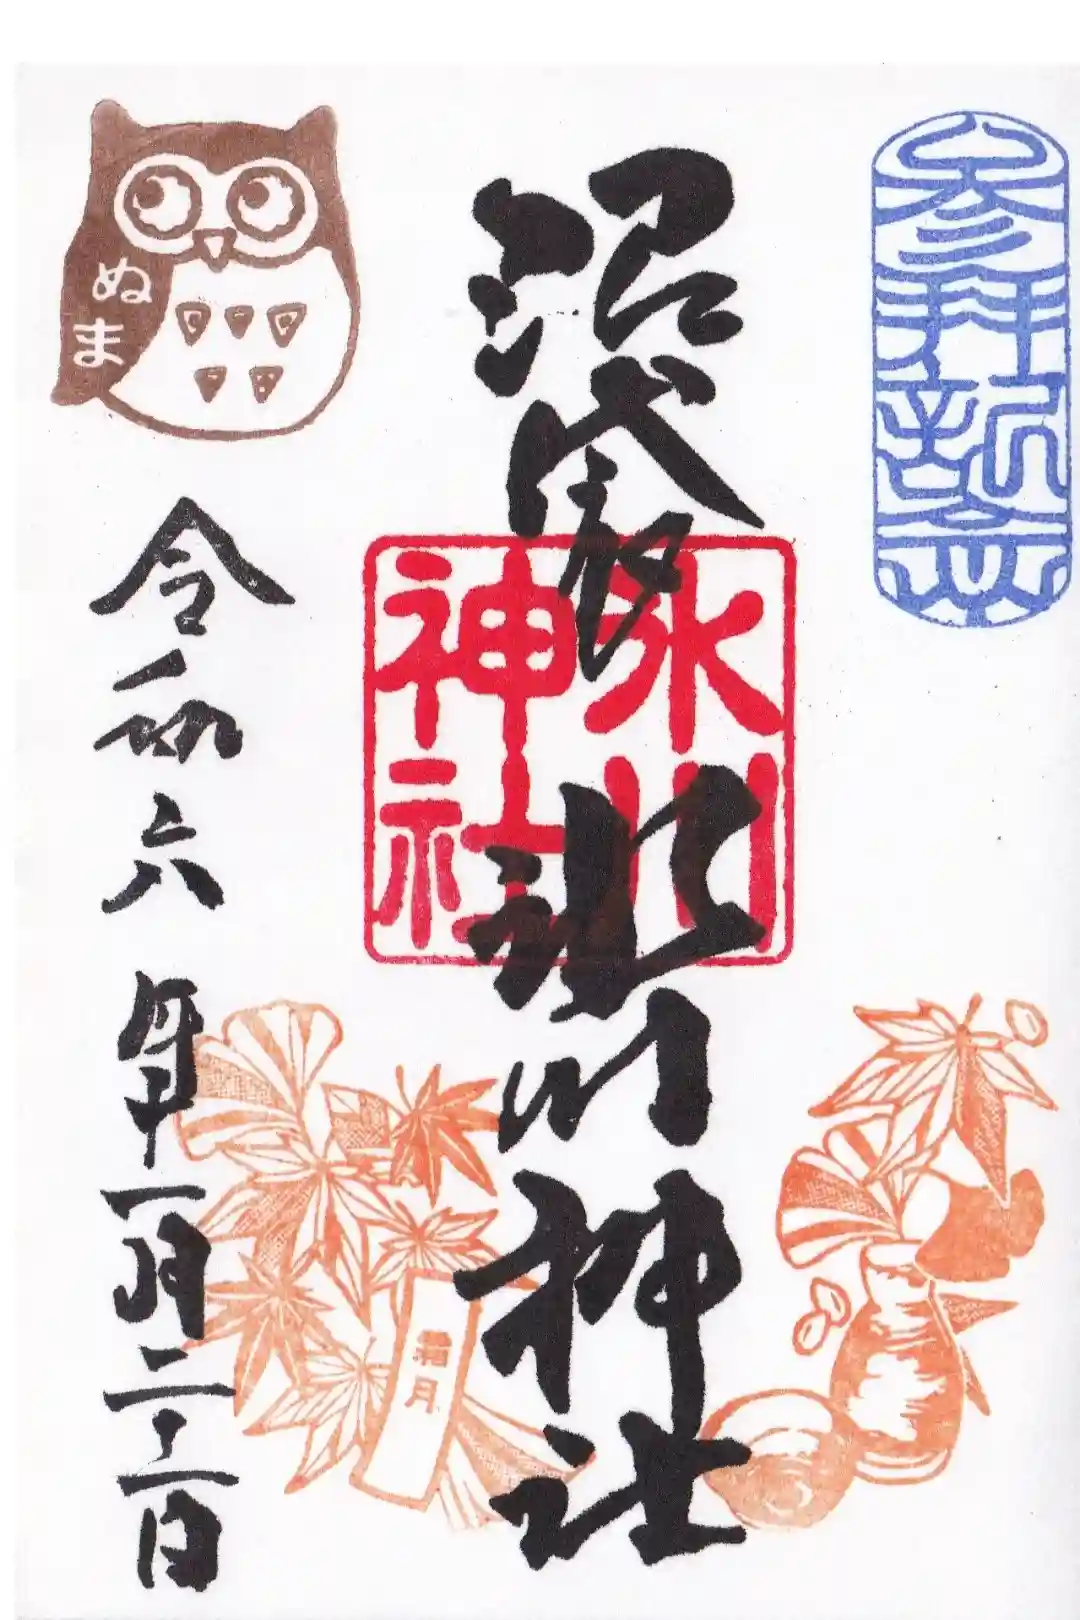 参拝記念
沼袋氷川神社
氷川
神社
ぬま
令和六年十一月二二日
霜月